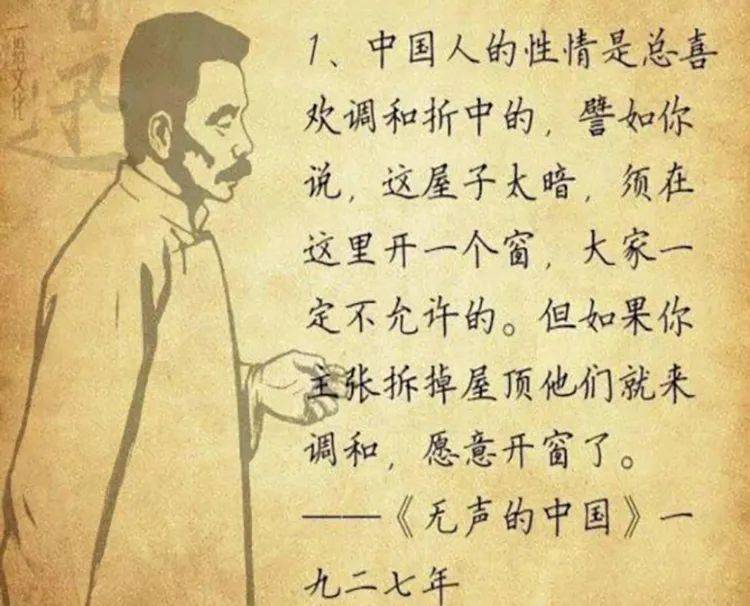 1、中国人的性情是总喜
欢调和折中的，譬如你
说，这屋子太暗，须在
这里开一个窗，大家一
定不允许的。但如果你
主张拆掉屋顶他们就来
调和，愿意开窗了。
——《无声的中国》一
九二七年
迅